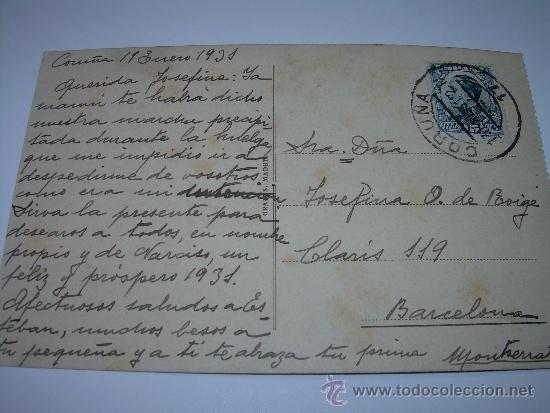 Coruña 1º Enero 1931
Querida Josefina: Ya
mamá te habrá dicho
nuestra marcha precipi
tada durante la huelga
que me impidió ir a
despedirme de vosotros
como era mi intención
Sirva la presente para
desearos a todos, en nombre
propio y de Narciso, un
féliz y próspero 1931.
Afectuosos saludos a Es
téban, muchos besos a
tu pequeña y a ti te abraza tu prima Montserrat
CORUÑA
Sra. Dña
Josefina O. de Boigé
Claris 119
Barcelona
MADRID
todocoleccion
www.todocoleccion.net